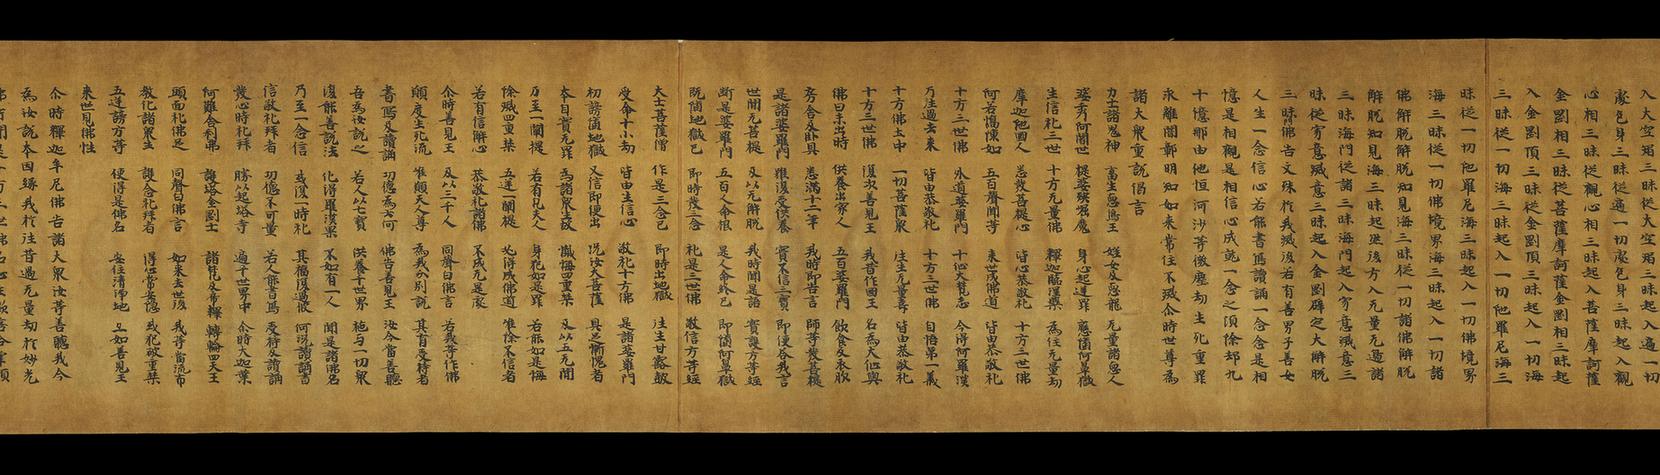 入大空𣵀三昧從大空𣵀三昧起入遍一切
處色身三昧從遍一切處色身三昧起入觀
心相三昧從觀心相三昧起入菩薩摩訶薩
金剛相三昧從菩薩摩訶薩金剛相三昧起
入金剛頂三昧從金剛頂三昧起入一切海
三昧從一切海三昧起入一切陁羅尼海三
昧從一切陁羅尼海三昧起入一切佛境界
海三昧從一切佛境界海三昧起入一切諸
佛解脫解脫知見海三昧從一切諸佛解脫
解脫知見海三昧起然後方入无量无邊諸
三昧海門從諸三昧海門起入寂意滅意三
昧從寂意滅意三昧起入金剛辟之大解脫
三昧佛告文殊於我滅後若有善男子善女
人生一念信心若能書寫讀誦一念念是相
憶是相觀是相信心成就一念之頃除却九
十億那由他恒河沙等微塵劫生死重罪
永離闇鄣明知如來常住不滅尒時世尊為
諸大衆重說偈言
力士諸鬼神 畜生惡馬王 婬女及惡龍 无量諸惡人
婆秀阿闍世 提婆瞋恚魔 身心起逆罪 應墮阿鼻獄
生信礼三世 十方无量佛 釋迦臨涅槃 為住无量劫
摩伽陁國人 悉發菩提心 皆心恭敬礼 十方三世佛
阿若憍慄如 五百聲聞等 來世成佛道 皆由恭敬礼
十方三世佛 外道婆羅門 十仙大梵志 今得阿羅漢
乃至過去來 皆由恭敬礼 十方三世佛 自悟第一義
十方佛土中 一切菩薩衆 往生无量壽 皆由恭敬礼
十方三世佛 復次善見王 我昔作國王 名為大仙與
佛日未出時 供養出家人 五百婆羅門 飲食及衣服
房舍及卧具 悉滿十二年 我時即告言 師等發菩提
是諸婆羅門 雖復受供養 實不信三寶 即便答我言
世間无菩提 及以无解脫 我時聞是語 實謙方等經
斷是婆羅門 五百人命根 是人命終已 即墮阿鼻獄
既墮地獄已 即時發三念 礼是三世佛 敬信方等經
大士菩薩僧 作是三念已 即時出地獄 往生甘露皷
受命十小劫 皆由生信心 敬礼十方佛 是諸婆羅門
初謗墮地獄 又信即便出 况汝大菩薩 具足慚愧者
本自實无罪 為諸衆生故 懺悔四重禁 及以五无間
乃至一闡提 若有凡夫人 身犯如是罪 若能如是悔
除滅四重禁 五逆一闡提 必得成佛道 唯除不信者
若有信解心 恭敬礼諸佛 不成无是處
尒時善見王 及以三千人 同聲白佛言 若我等作佛
願度生死流 唯願天人尊 為我分別說 其有受持者
書寫及讀誦 功德為若何 佛告善見王 汝今當善聽
吾為汝說之 若人以七寶 供養千世界 施与一切衆
復能善說法 化得羅漢果 不如有一人 聞是諸佛名
乃至一念信 或復一時礼 其福復過彼 何况讀誦書
信敬礼拜者 功德不可量 若人能書寫 受持及讀誦
發心時礼拜 勝以起塔寺 遍千世界中 尒時大迦葉
阿難舍利弗 護塔金剛士 諸梵及帝釋 轉輪四天王
頭面礼佛足 同聲白佛言 如來去世後 我等當流布
教化諸衆生 護合礼拜者 得心常安隱 或犯破重禁
五逆謗方等 便得是佛名 安住清淨地 亦如善見王
來世見佛性
尒時釋迦牟尼佛告諸大衆汝等善聽我今
為汝說本因緣我於往昔過无量劫於妙光